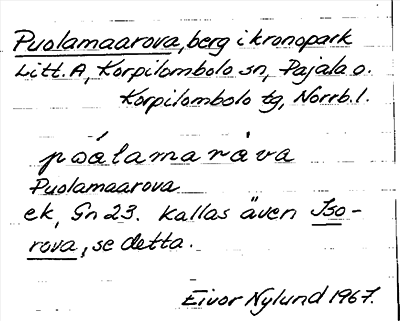 Puolamaarova, berg i kronopark
Litt. A, Korpilombolo sn, Pajala o.
Korpilombolo tg, Norrb. l.
pòàlamaràva
Puolamaarova
ek, Gn 23. kallas även Iso-
rova, se detta.
Eivor Nylund 1967.